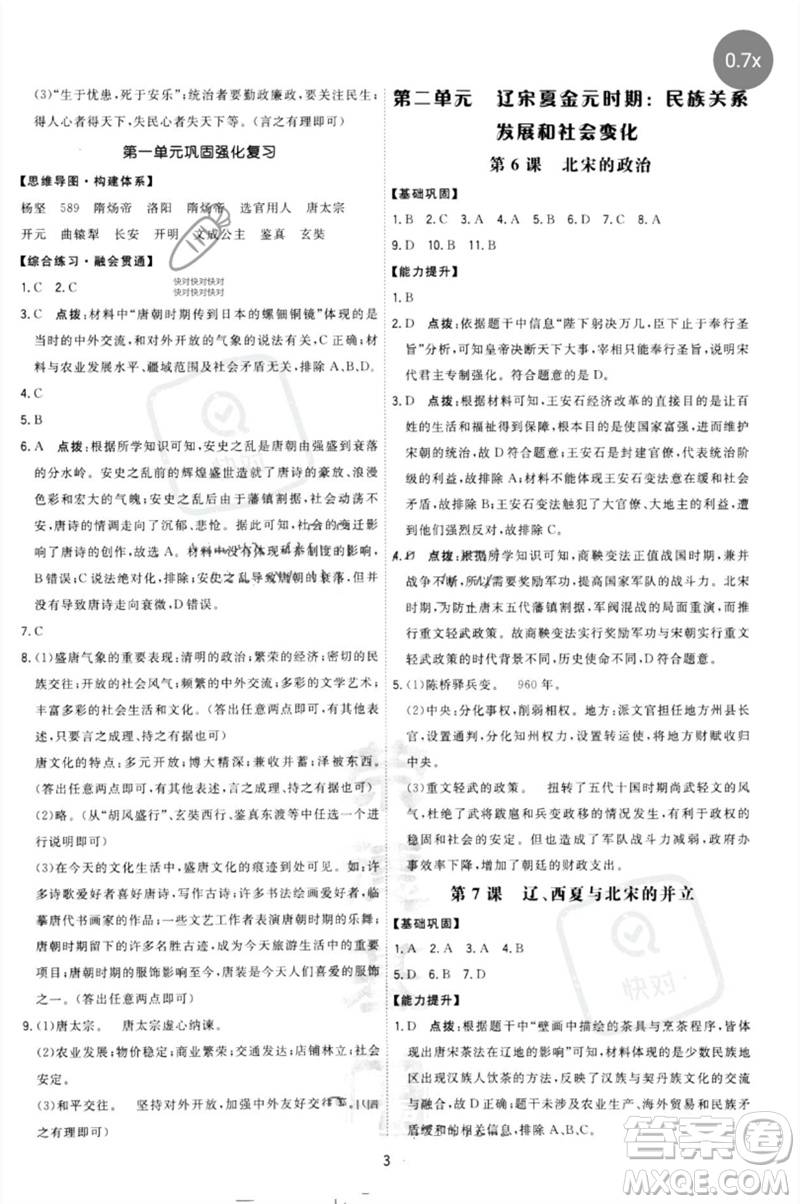 0.7x
(3)“生于忧患，死于安乐”；统治者要勤政廉政，戒奢从简；
得人心者得天下，失民心者失天下。(言之有理即可)
第一单元巩固强化复习
【思维导图·构建体系】
杨坚 589 隋炀帝 洛阳 隋炀帝 选官用人 唐太宗
开元 曲辕犁 长安 开明 文成公主 鉴真 玄奘
【综合练习·融会贯通】
1.C 2.C
3.C 点拨：材料中“唐朝时期传到日本的螺钿铜镜”体现的是
当时的中外交流，和对外开放的气象的说法有关，故选C。
材料与农业发展水平、疆域范围及社会矛盾无关，排除A、B、D。
4.C
5.B
6.A 点拨：根据所学知识可知，安史之乱是唐朝由强盛到衰落
的分水岭。安史之乱前的辉煌盛世有助于唐诗的豪放、浪漫
色彩和宏大的气魄；安史之乱后由于藩镇割据，社会动荡不
安，唐诗的情调走向了沉郁、悲怆。据此可知，社会的变迁影
响了唐诗的创作，故选A。材料中没有体现科举制度的影响，
B错误；C说法过于绝对，排除；安史之乱是唐朝由盛转衰，并
没有导致唐诗走向衰微，D错误。
7.C
8.(1)盛唐气象的重要表现：清明的政治；繁荣的经济；密切的民
族交往；开放的社会风气；频繁的中外交流；多彩的文学艺术；
丰富多彩的社会生活和文化。(答出任意两点即可，其他答案
言之成理、符合题意亦可)
唐文化的特点：多元开放；博大精深；兼收并蓄；泽被东西。
(答出任意两点即可，其他答案言之成理、符合题意亦可)
(2)略。(从“胡风盛行”、玄奘西行、鉴真东渡等任选一个进
行说明即可)
(3)在今天的文化生活中，盛唐文化的痕迹到处可见。如：许
多诗歌爱好者喜好唐诗、写作古诗；许多书法绘画爱好者，临
摹唐代书画家的作品；一些文艺工作者借鉴唐朝时期的乐舞，
创作的歌舞受到了许多人喜欢；今天旅游生活中，很多古城都
有唐朝的历史遗迹；唐朝时期的服饰影响至今，仍有人喜爱唐
装。(答出任意两点即可)
9.(1)唐太宗。 唐太宗虚心纳谏。
(2)农业发展；物价稳定；商业繁荣；交通便利；店铺林立；社会
安定。
(3)和平交往。 坚持对外开放，加强中外友好交往等。(言
之有理即可)
第二单元 辽宋夏金元时期：民族关系
发展和社会变化
第6课 北宋的政治
【基础巩固】
1.B 2.C 3.A 4.C 5.B 6.A 7.D 8.A
9.D 10.B 11.B
【能力提升】
1.B
2.D 点拨：依据题干中信息“陛下躬决万几，臣下止于奉行圣
旨”可知，可知皇帝决天下大事，宰相只能奉行圣旨，说明宋
代君主专制强化。符合题意的是D。
3.D 点拨：根据材料可知，王安石经济改革的直接目的是十
分明显的，就是为了富国，根本目的是为了富国强兵，维护
宋朝的统治。故D符合题意；王安石变法并不是为了大地主
阶级的利益，故排除A；材料中王安石变法无法体现缓和社会
矛盾，故排除B；王安石变法触犯了大官僚、大地主的利益，
遭到他们的强烈反对，故排除C。
4.D 点拨：根据所学知识可知，商鞅变法正值战国时期，兼并
战争不断，所以需要发展军功，提高国家军队的战斗力。北宋
时期，为防止唐末五代藩镇割据，军阀混战的局面重演，推
行重文轻武政策。故商鞅变法奖励军功与宋朝实行重文
轻武政策的不同主要因为所处历史环境不同，故D项正确。
5.(1)陈桥驿兵变。 960年。
(2)中央：分化事权，削弱相权。地方：派文官担任地方州县长
官，设置通判，以分知州的权力；设置转运使，把地方财赋收归
中央。
(3)重文轻武的政策。 扭转了五代十国时期尚武轻文的风
气，杜绝了武将跋扈和兵变政移的情况发生，有利于政权的
稳固和社会的安定。但同时也造成了军队战斗力减弱，政府办
事效率下降，增加了朝廷的财政支出。
第7课 辽、西夏与北宋的并立
【基础巩固】
1.A 2.A 3.A 4.D
5.D 6.B 7.D
【能力提升】
1.D 点拨：根据题干中“壁画中描绘的茶具与烹茶程序，皆显
出唐宋茶法在辽地的影响”可知，材料体现的是少数民族地
区汉族人饮茶的习惯，体现了汉族人与契丹族文化上的交流
与融合，故选D。材料没有涉及农业生产、海外贸易和民族
矛盾缓和的相关信息，排除A、B、C。
快对快对快对
快对快对快对
快对
快对
答案圈
MXQE.COM
3